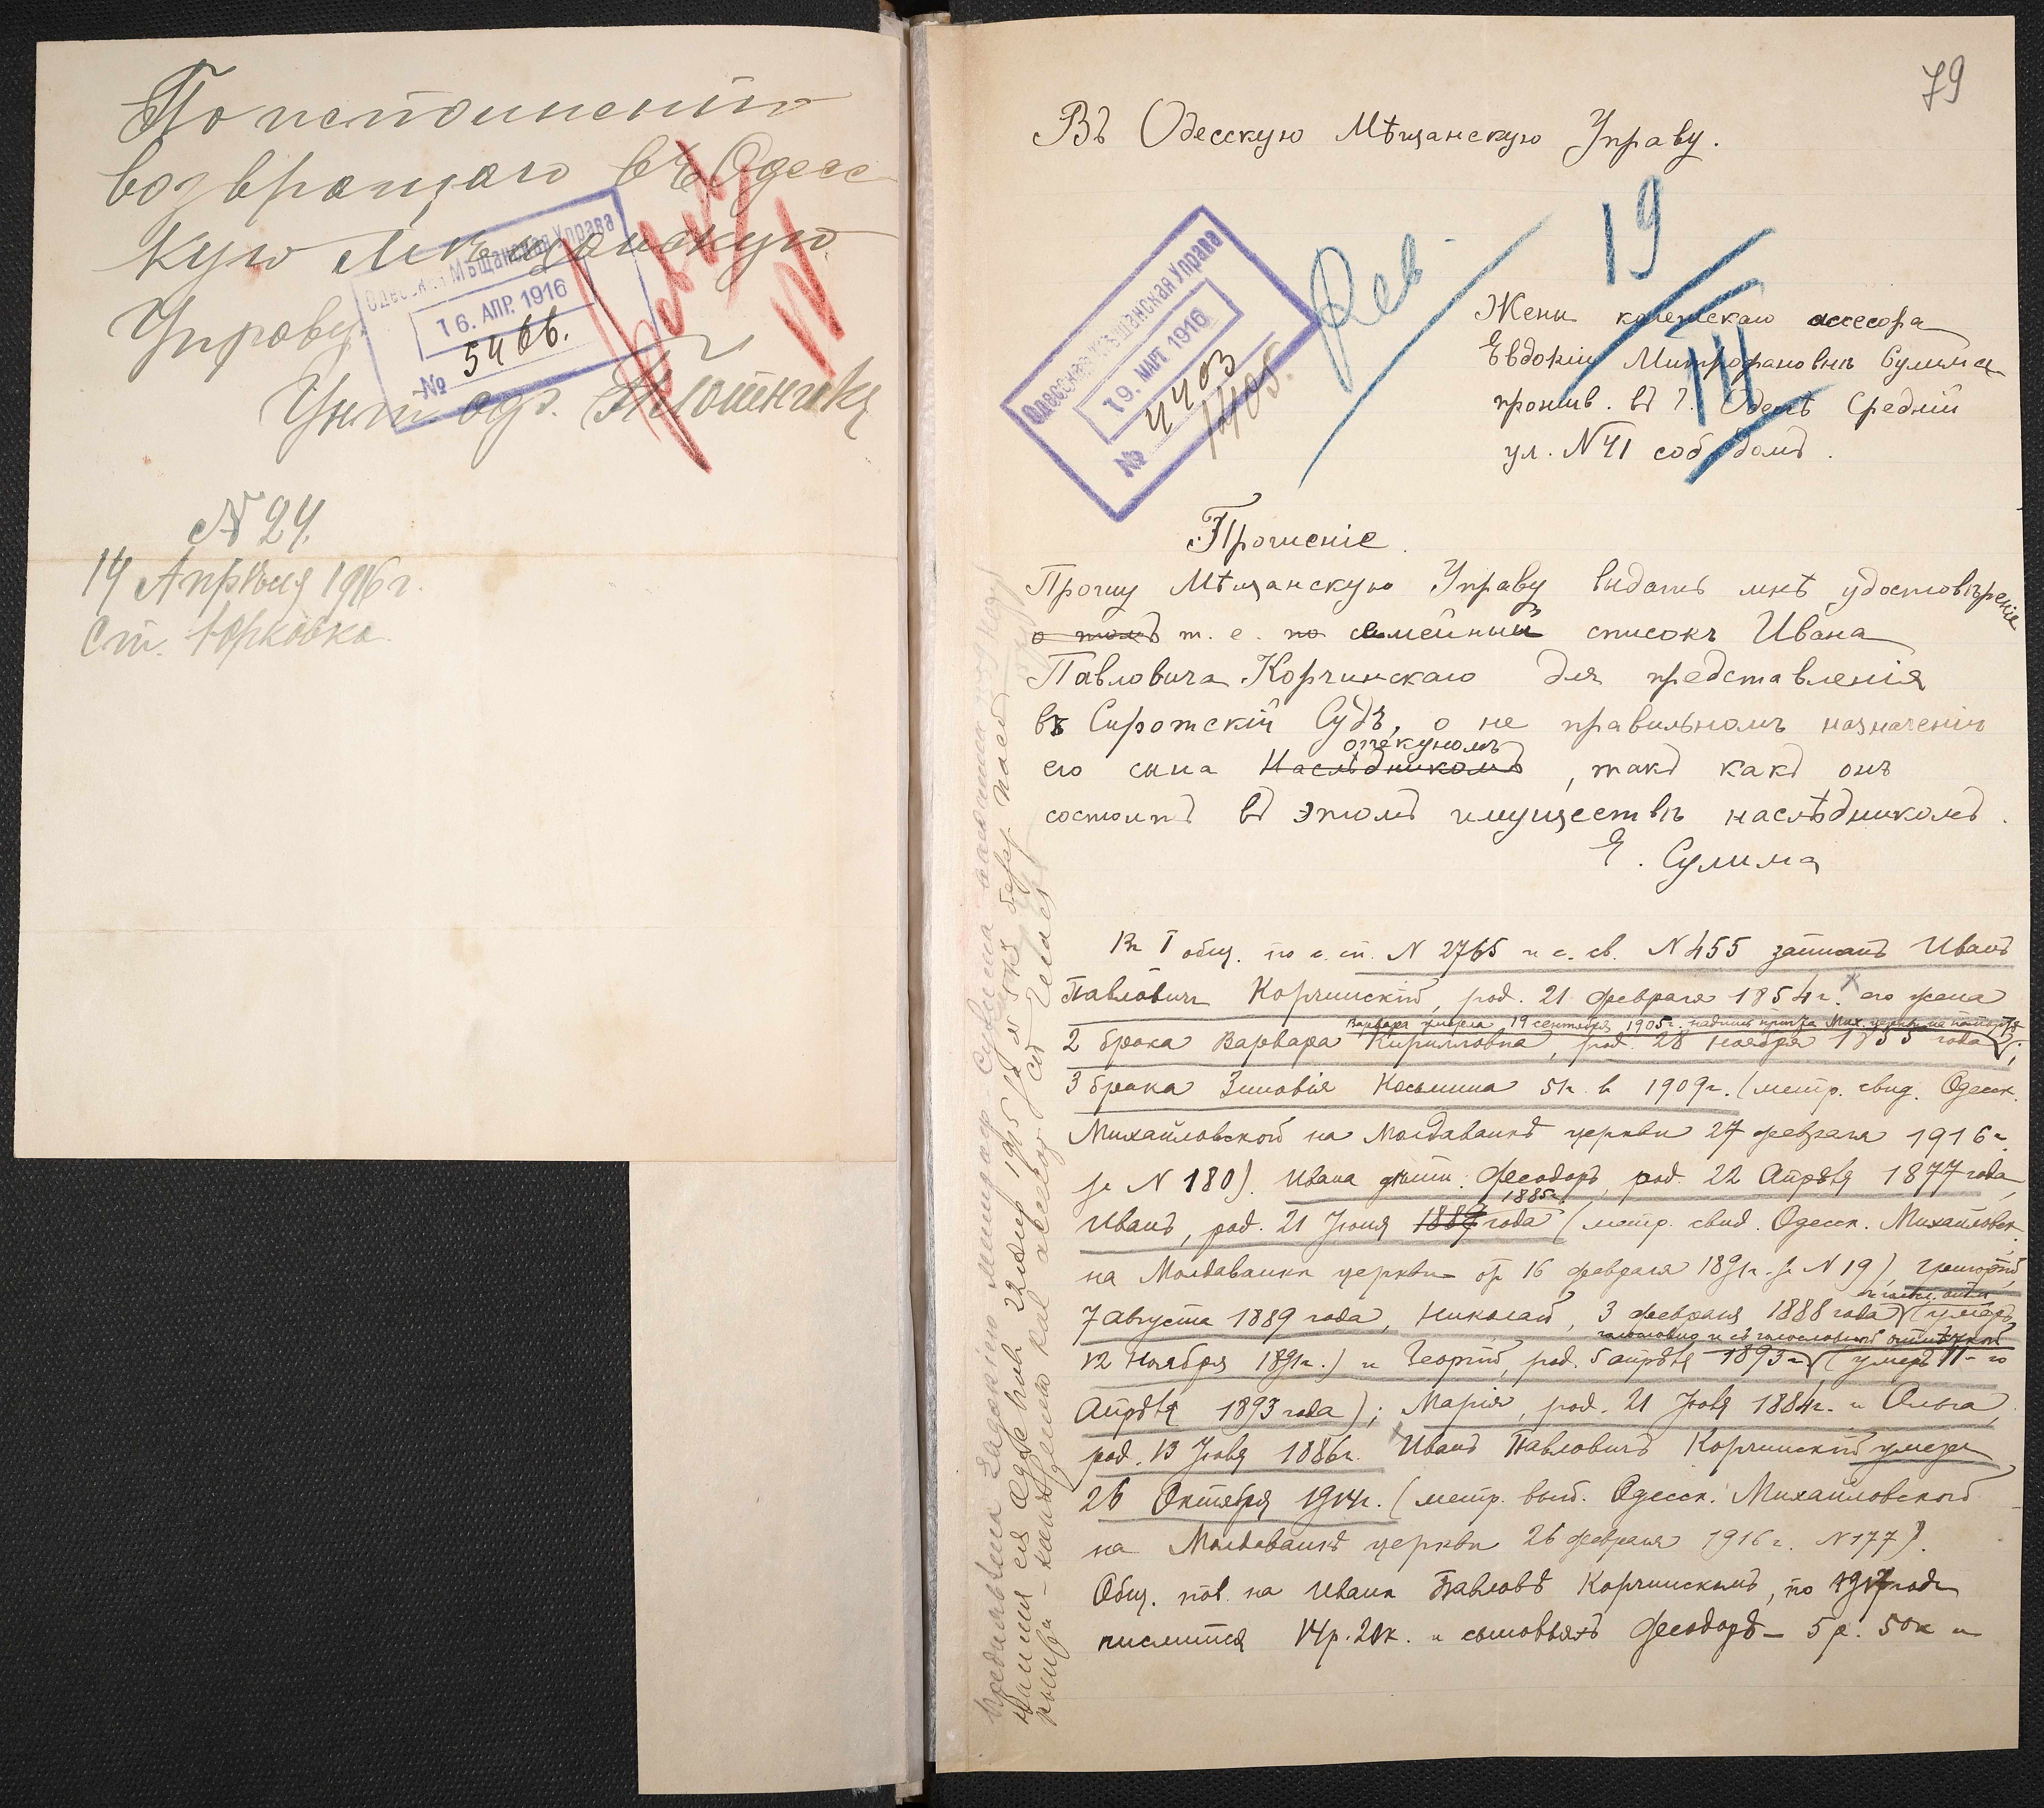 По исполненiи
возвращаю въ Одесс
кую Мѣщанскую
Управу
Одесская Мѣщанская Управа
16. АПР. 1916
№ 5466.
Унт. офз.
№ 24.
14 Апрѣля 1916 г.
Ст. Юрковка.
79
Въ Одесскую Мѣщанскую Управу.
19
III
Одесская Мѣщанская Управа
19. МАРТ 1916
№ 4403
4405.
Рев
Жены колежскаго ассесора
Евдокiи Митрофановны Сулима
прожив. въ г. Одессѣ Средний
ул. № 41 соб. домъ.
Прошенiе.
Прошу Мѣщанскую Управу выдать мнѣ удостовѣренiе
о томъ т. е. по семейный списокъ Ивана
Павловича Корчинскаго для представленiя
въ Сиротскiй Судъ, о не правильномъ назначенiи
опекуномъ
его сына Наслѣдникомъ, такъ какъ онъ
состоитъ въ этомъ имуществѣ наслѣдникомъ.
Е. Сулима
Въ I общ. по с. сп. N 2765 и с. св. N 455 записанъ Иванъ
Павловичъ Корчинскiй, род. 21 февраля 1854 г. его жена
Варвара умерла 19 сентября 1905 г. надпись прич.
2 брака Варвара Кирилловна, род. 28 ноября 1855 года;
3 брака Зиновiя Косьмина 51 г. в 1909 г. (метр. свид. Одесск.
Михайловской на Молдаванкѣ церкви 27 февраля 1916 г.
за N 180). Ивана дѣти: Феодоръ, род. 22 Апрѣля 1877 года,
1885 г.
Иванъ, род. 21 Iюня 1887 года (метр. свид. Одесск. Михайловск.
на Молдаванки церкви от 16 февраля 1891 г. за N 19), Григорiй,
7 августа 1889 года, Николай, 3 февраля 1888 года (умеръ
12 Ноября 1891 г.) и Георгiй, род. 5 апрѣля 1893 г. (умеръ 11-го
Апрѣля 1893 года); Марiя, род. 21 Iюля 1884 г. и Ольга,
род. 13 Iюля 1886 г. Иванъ Павловичъ Корчинскiй умеръ
26 Октября 1914 г. (метр. вып. Одесск. Михайловской
на Молдаванкѣ церкви 26 февраля 1916 г. N 177).
Общ. пов. на Иванѣ Павловѣ Корчинскомъ, по 1917 годъ
числится 14 р. 20 к. и сыновьяхъ Феодорѣ - 5 р. 50 к и